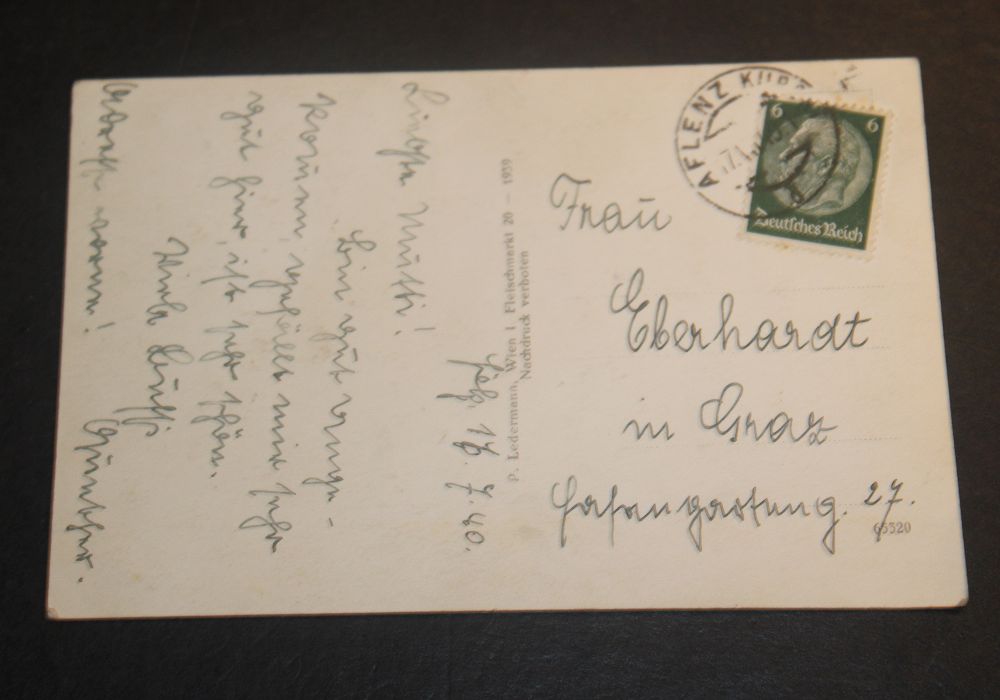 Fbg. 16.7.40.
Liebste Mutti!
Bin gut ange-
kommen, gefällt mir sehr
gut hier, ist sehr schön.
Viele Bussi
Günther.
Adresse vorne!
P. Ledermann, Wien I, Fleischmarkt 20 — 1939
Nachdruck verboten
AFLENZ KURORT
6 6
Deutsches Reich
Frau
Eberhardt
in Graz
Hasengarteng. 27.
65520